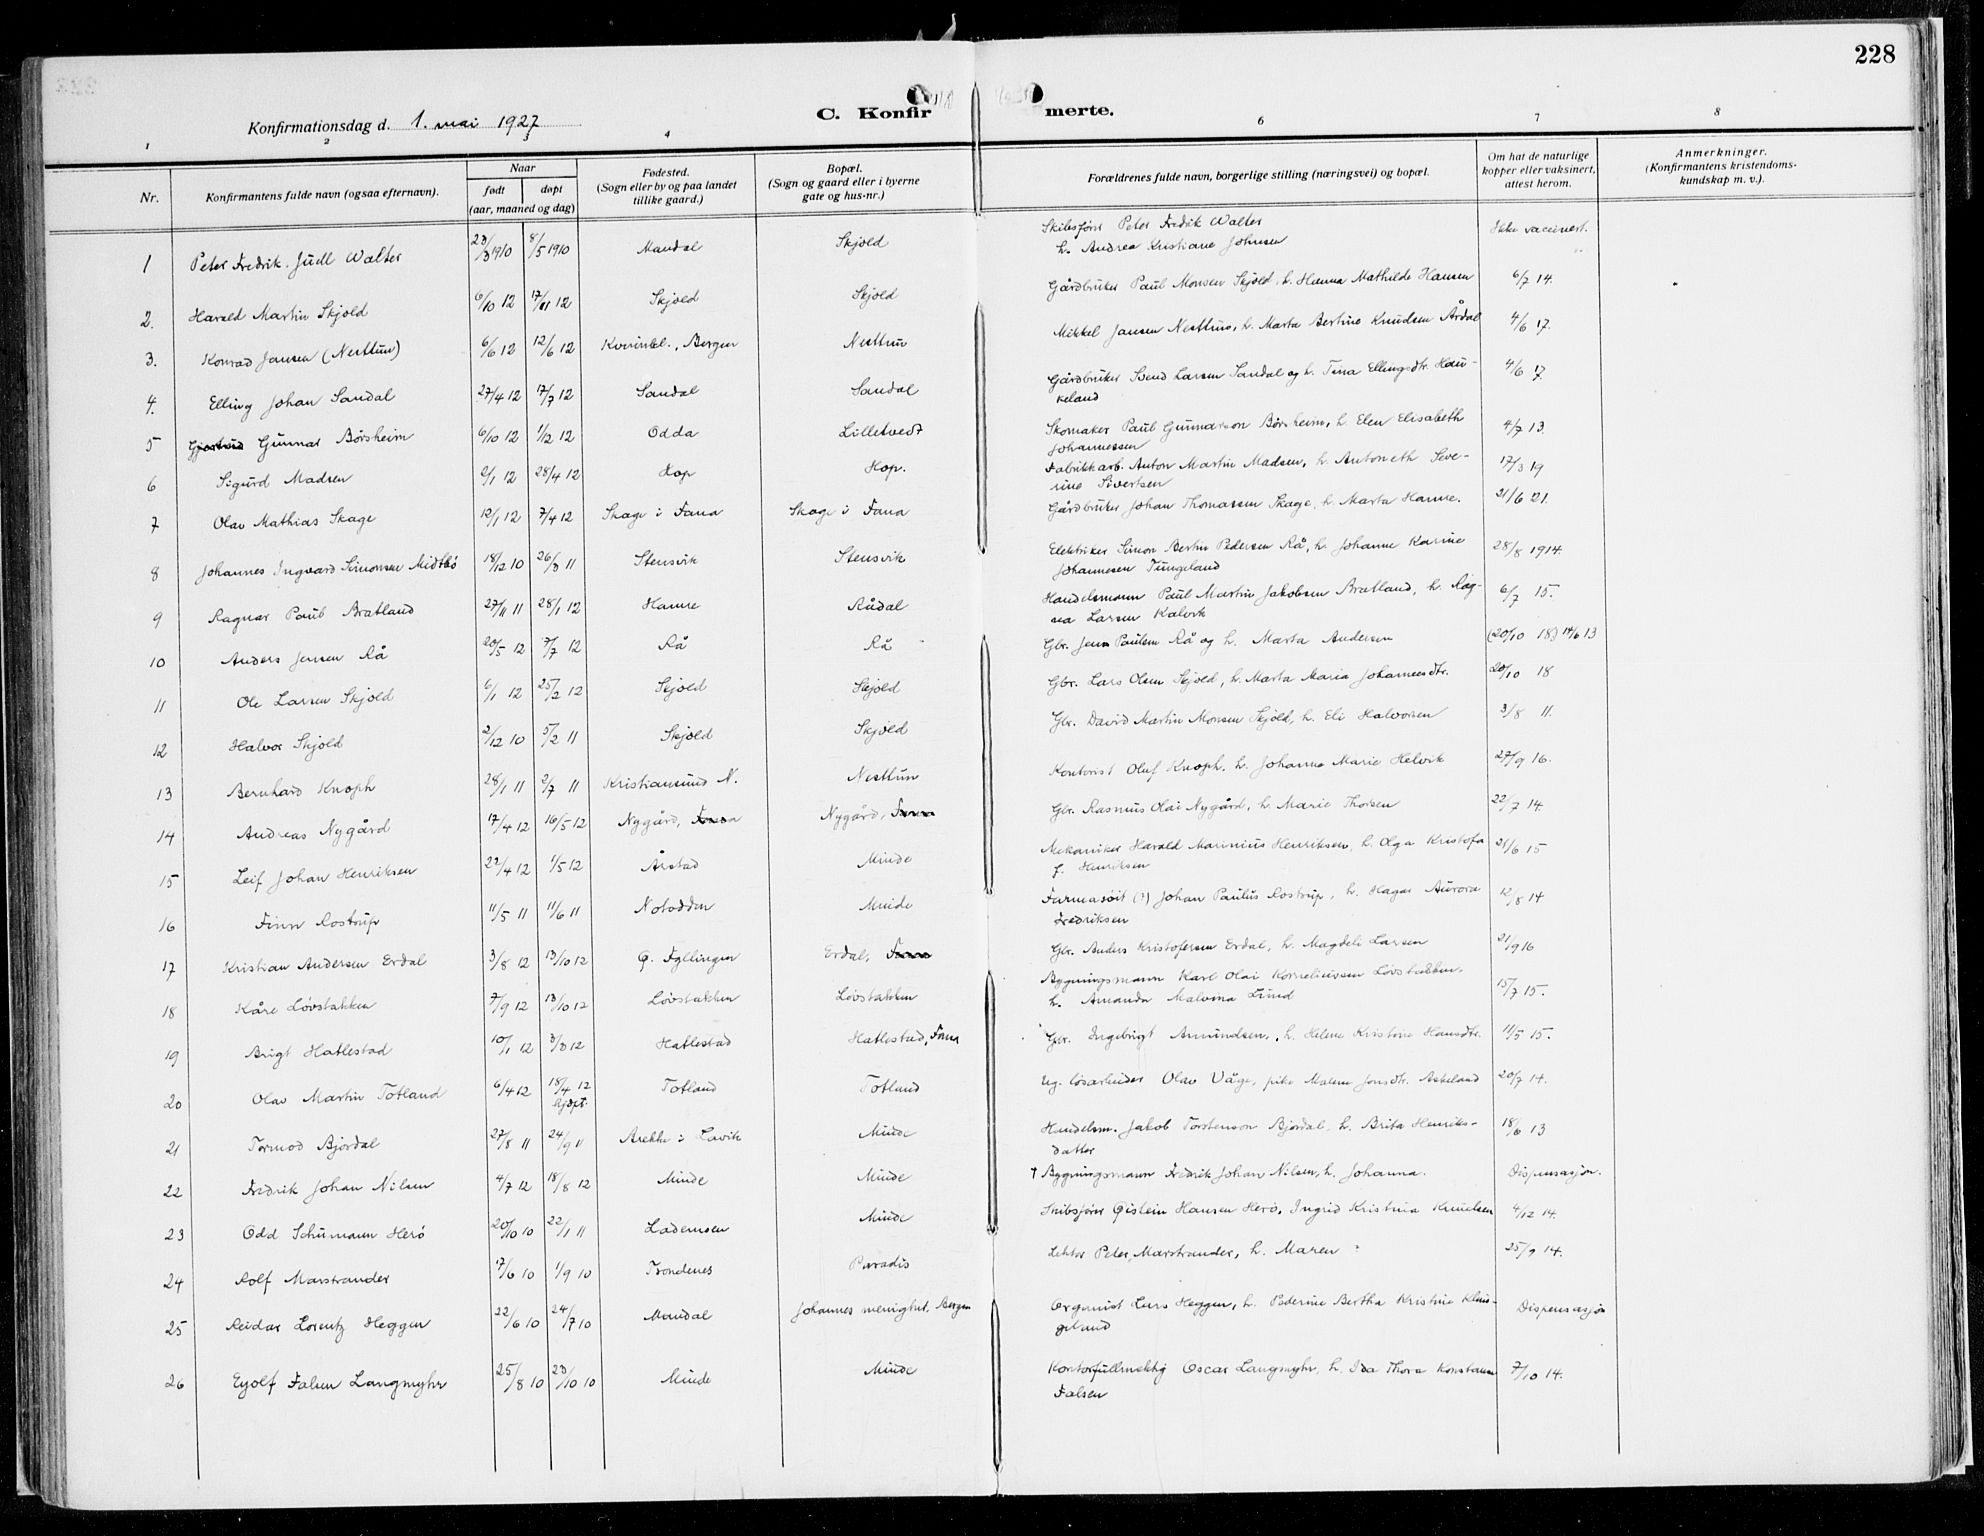 228
Konfirmationsdag d. 1. mai 1927
C. Konfirmerte.
1 2 3 4 6 7 8
Nr.
Konfirmantens fulde navn (ogsaa efternavn).
Naar
født døpt
(aar, maaned og dag)
Fødested.
(Sogn eller by og paa landet
tillike gaard.)
Bopæl.
(Sogn og gaard eller i byerne
gate og hus-nr.)
Forældrenes fulde navn, borgerlige stilling (næringsvei) og bopæl.
Om hat de naturlige
kopper eller vaksinert,
attest herom.
Anmerkninger.
(Konfirmantens kristendoms-
kundskap m. v.).
1 Peter Fredrik Juell Walter 23/3 1910 8/5 1910 Mandal Skjold Skibsfører Peter Fredrik Walter Ikke vaccinert.
h. Andrea Kristiane Johnsen
2. Harald Martin Skjold 6/10 12 17/11 12 Skjold Skjold Gårdbruker Paul Monsen Skjold, h. Hanna Mathilde Hansen 6/7 14.
3. Konrad Jansen (Nesttun) 6/6 12 12/6 12 Kvinnekl., Bergen Nesttun Mikkel Jansen Nesttun, h. Marta Bertine Knudsen Årdal 4/6 17.
4. Elling Johan Sandal 27/4 12 17/7 12 Sandal Sandal Gårdbruker Svend Larsen Sandal og h. Tina Ellingsdtr. Hau- 4/6 17.
keland
5 Gunnar Børsheim 6/10 12 1/12 12 Odda Lilletvedt Skomaker Paul Gunnarson Børsheim, h. Elen Elisabeth 4/7 13.
Johannessen
6 Sigurd Madsen 2/1 12 28/4 12 Hop Hop. Fabrikkarb. Anton Martin Madsen, h. Antoneth Seve- 17/3 19
rine Sivertsen
7 Olav Mathias Skage 12/1 12 7/4 12 Skage i Fana Skage i Fana Gårdbruker Johan Thomassen Skage, h. Marta Hanne. 21/6 21.
8 Johannes Ingvard Simonsen Midtbø 18/12 10 26/3 11 Stensvik Stensvik Elektriker Simon Bertin Pedersen Rå, h. Johanne Karine 28/8 1914.
Johannesen Tungeland
9 Ragnar Paul Bratland 27/11 11 28/1 12 Hamre Rådal Handelsmann Paul Martin Jakobsen Bratland, h. Rag- 6/7 15.
na Larsen Kalvik
10 Anders Jensen Rå 20/5 12 7/7 12 Rå Rå Gbr. Jens Paulsen Rå og h. Marta Andersen (20/10 18) 14/6 13
11 Ole Larsen Skjold 6/1 12 25/2 12 Skjold Skjold Gbr. Lars Olsen Skjold, h. Marta Maria Johannesdtr. 20/10 18
12 Halvor Skjold 2/12 10 5/2 11 Skjold Skjold Gbr. David Martin Monsen Skjold, h. Eli Halvorsen 3/8 11.
13 Bernhard Knoph 28/1 11 2/7 11 Kristiansund N. Nesttun Kontorist Oluf Knoph, h. Johanne Marie Helvik 27/9 16.
14 Andreas Nygård 17/4 12 16/5 12 Nygård, Fana Nygård, Fana Gbr. Rasmus Olai Nygård, h. Marie Thorsen 22/7 14.
15 Leif Johan Henriksen 22/4 12 1/5 12 Årstad Minde Mekaniker Harald Marinius Henriksen, h. Olga Kristofa 21/6 15
f. Henriksen
16 Finn Rostrup 11/5 11 11/6 11 Notodden Minde Farmasøit (?) Johan Paulus Rostrup, h. Hagar Aurora 12/8 14
Fredriksen
17 Kristian Andersen Erdal 3/8 12 13/10 12 Ø. Fyllingen Erdal, Fana Gbr. Anders Kristofersen Erdal, h. Magdeli Larsen 21/9 16
18 Kåre Løvstakken 7/9 12 13/10 12 Løvstakken Løvstakken Bygningsmann Karl Olai Korneliussen Løvstakken. 15/7 15.
h. Amanda Malvina Lund
19 Brigt Hatlestad 10/1 12 3/3 12 Hatlestad Hatlestad, Fana Gbr. Ingebrigt Amundsen, h. Helene Kristine Hansdtr. 11/5 15.
20 Olav Martin Totland 6/4 12 18/4 12 Totland Totland Ug. løsarbeider Olav Våge, pike Malene Jonsdtr. Askeland 20/7 14.
hjdpt.
21 Tormod Bjordal 27/8 11 24/9 11 Brekke i Lavik Minde Handelsm. Jakob Torstenson Bjordal, h. Brita Henriks- 18/6 13
datter
22 Fredrik Johan Nilsen 4/7 12 18/8 12 Minde Minde † Bygningsmann Fredrik Johan Nilsen, h. Johanna. Dispensasjon.
23 Odd Schumann Herø 20/10 10 22/1 11 Lademoen Minde Skibsfører Øistein Hansen Herø, Ingrid Kristina Knudsen 4/12 14.
24 Rolf Marstrander 7/6 10 1/9 10 Trondenes Paradis Lektor Peter Marstrander, h. Maren " 25/9 14.
25 Reidar Lorentz Heggen 22/6 10 24/7 10 Mandal Johannes menighet, Bergen Organist Lars Heggen, h. Pederine Bertha Kristine Klun- Dispensasjon
geland
26 Eyolf Falsen Langmyhr 25/8 10 23/10 10 Minde Minde Kontorfullmektig Oscar Langmyhr, h. Ida Thora Konstanse 7/10 14.
Falsen